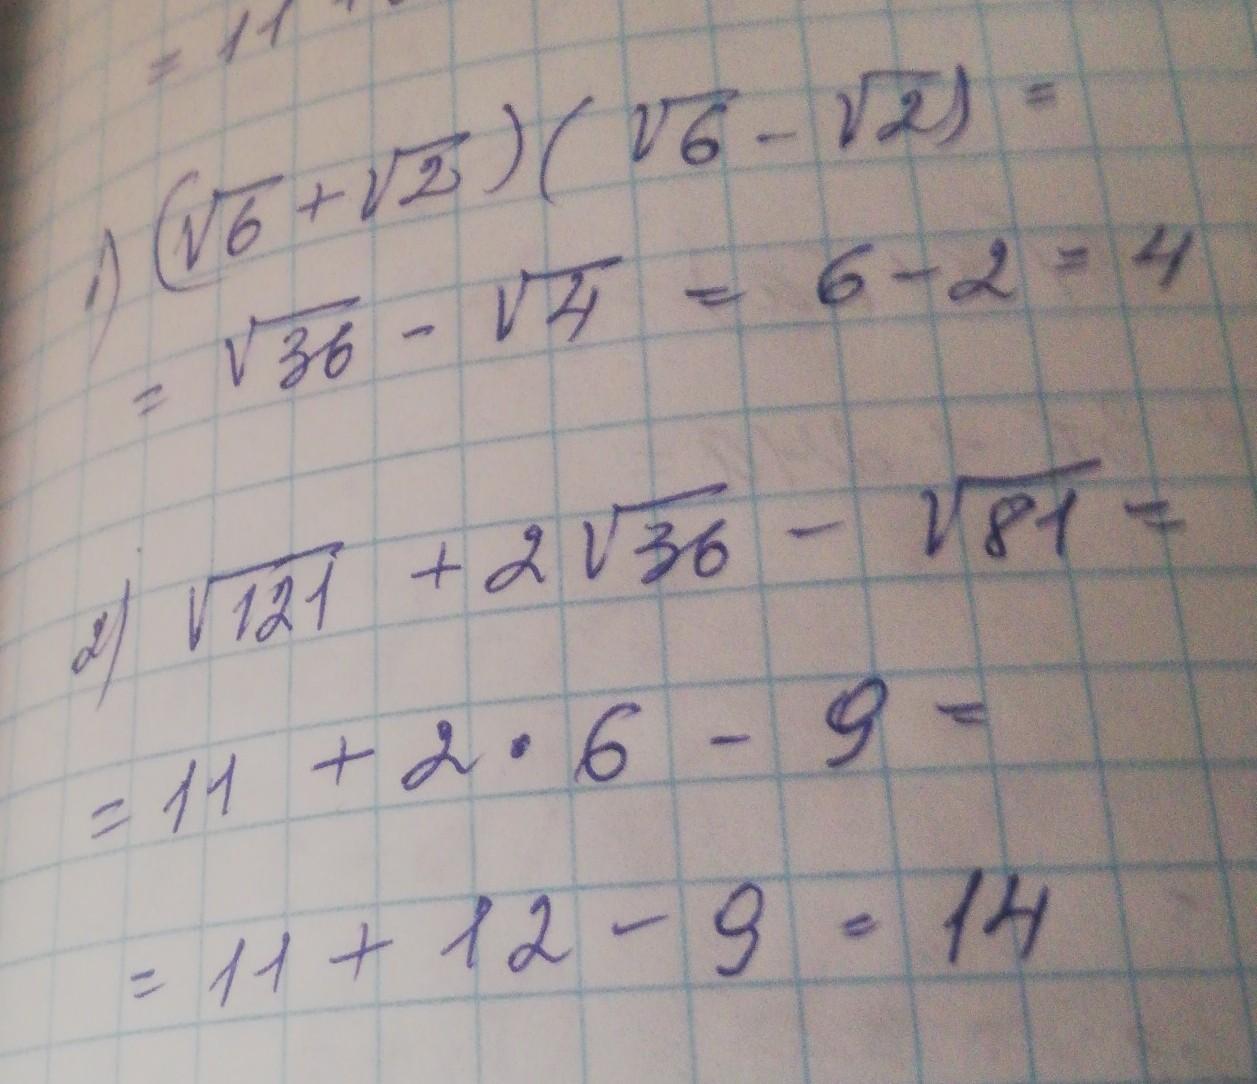 = 11 +
1) (√6 + √2)(√6 - √2) =
= √36 - √4 = 6 - 2 = 4
2) √121 + 2√36 - √81 =
= 11 + 2 · 6 - 9 =
= 11 + 12 - 9 = 14